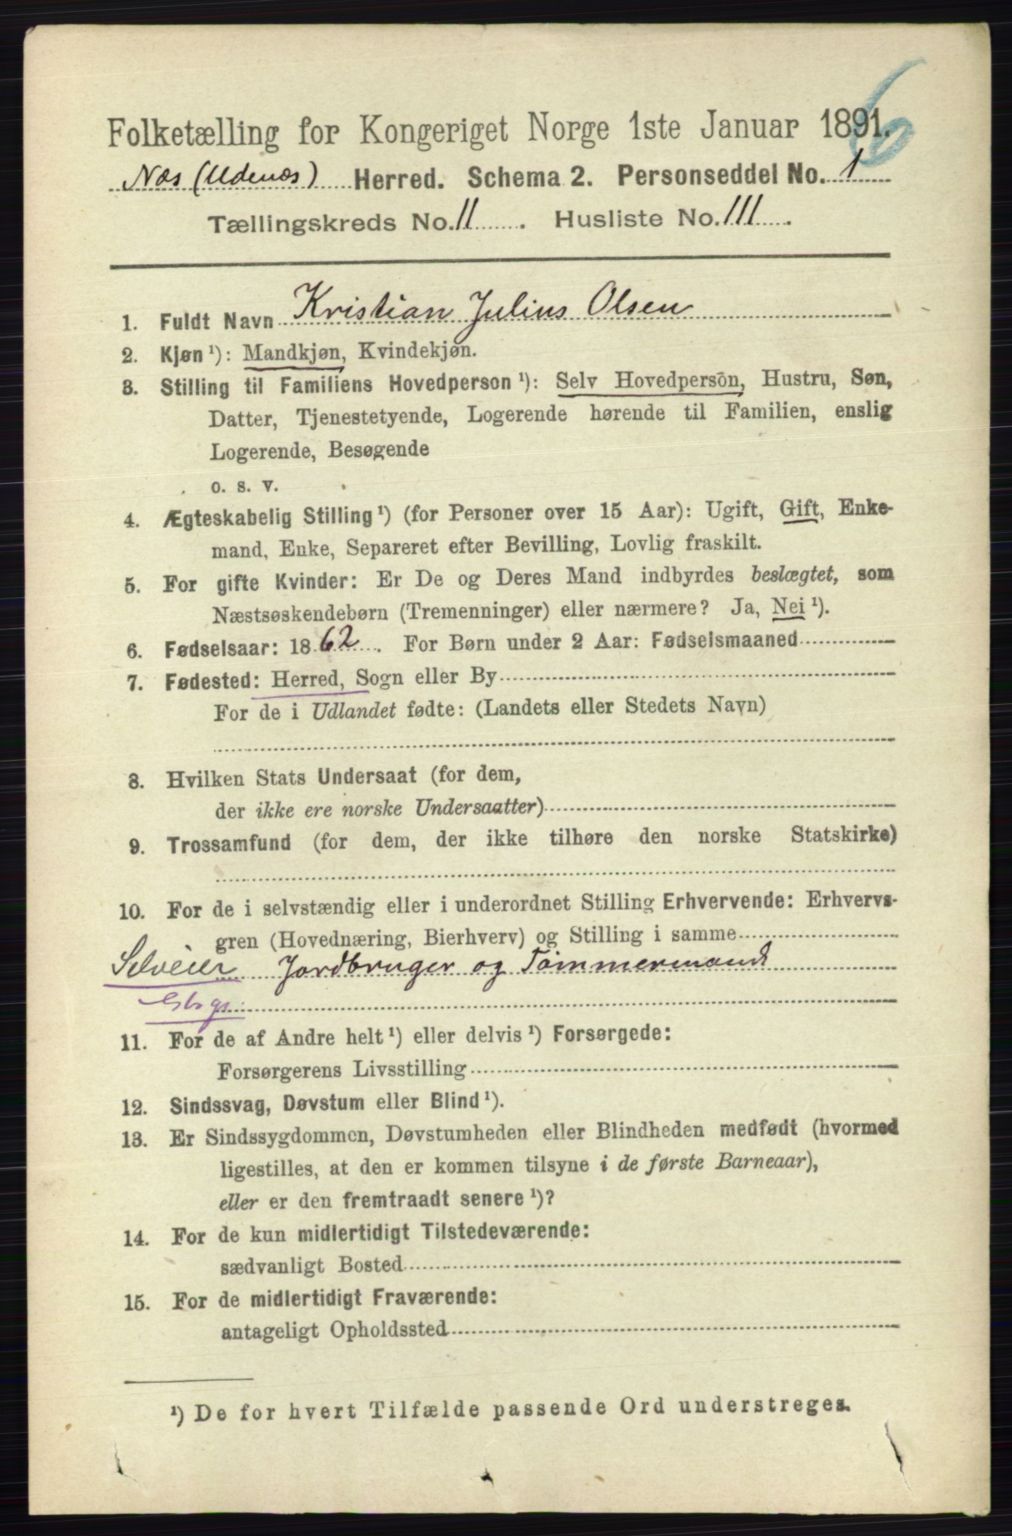 6
Folketælling for Kongeriget Norge 1ste Januar 1891.
Næs (Udenæs) Herred. Schema 2. Personseddel No. 1
Tællingskreds No. 11. Husliste No. 111.
1. Fuldt Navn Kristian Julius Olsen
2. Kjøn ¹): Mandkjøn, Kvindekjøn.
3. Stilling til Familiens Hovedperson ¹): Selv Hovedperson, Hustru, Søn,
Datter, Tjenestetyende, Logerende hørende til Familien, enslig
Logerende, Besøgende
o. s. v.
4. Ægteskabelig Stilling ¹) (for Personer over 15 Aar): Ugift, Gift, Enke-
mand, Enke, Separeret efter Bevilling, Lovlig fraskilt.
5. For gifte Kvinder: Er De og Deres Mand indbyrdes beslægtet, som
Næstsøskendebørn (Tremenninger) eller nærmere? Ja, Nei ¹).
6. Fødselsaar: 1862. For Børn under 2 Aar: Fødselsmaaned
7. Fødested: Herred, Sogn eller By
For de i Udlandet fødte: (Landets eller Stedets Navn)
8. Hvilken Stats Undersaat (for dem,
der ikke ere norske Undersaatter)
9. Trossamfund (for dem, der ikke tilhøre den norske Statskirke)
10. For de i selvstændig eller i underordnet Stilling Erhvervende: Erhvervs-
gren (Hovednæring, Bierhverv) og Stilling i samme
Selveier Jordbruger og Tømmermand
11. For de af Andre helt ¹) eller delvis ¹) Forsørgede:
Forsørgerens Livsstilling
12. Sindssvag, Døvstum eller Blind ¹).
13. Er Sindssygdommen, Døvstumheden eller Blindheden medfødt (hvormed
ligestilles, at den er kommen tilsyne i de første Barneaar),
eller er den fremtraadt senere ¹)?
14. For de kun midlertidigt Tilstedeværende:
sædvanligt Bosted
15. For de midlertidigt Fraværende:
antageligt Opholdssted
¹) De for hvert Tilfælde passende Ord understreges.